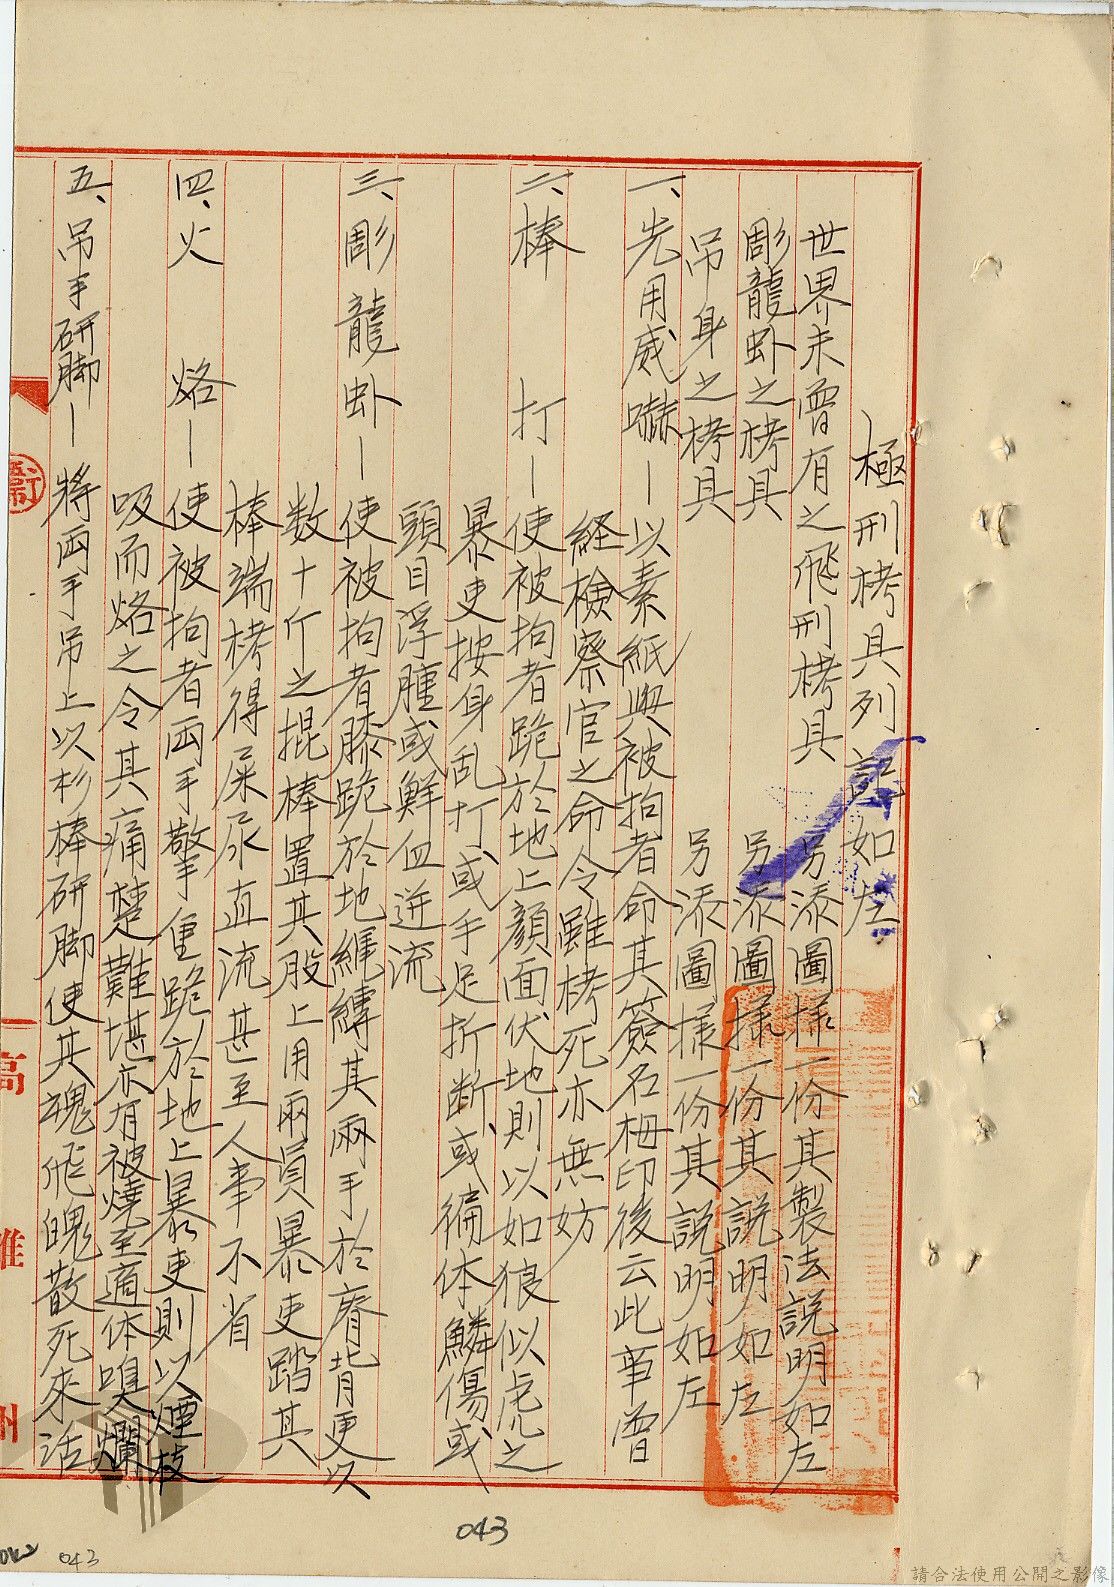 極刑栲具列記如左
世界未曽有之飛刑栲具 另添圖様一份其製法説明如左
彫龍卦之栲具 另添圖様一份其説明如左
吊身之栲具 另添圖様一份其説明如左
一、先用威嚇—以素紙與被拘者命其簽名栂印後云此事曽
経檢察官之命令雖栲死亦無妨
二、棒 打—使被拘者跪於地上顔面伏地則以如狼似虎之
暴吏按身乱打或手足折断、或徧体鱗傷或
頭目浮腫或鮮血迸流
三、彫龍卦—使被拘者膝跪於地縄縛其兩手於脊背更以
数十斤之掍棒置其股上用兩員暴吏踏其
棒端栲得屎尿直流甚至人事不省
四、火 烙—使被拘者両手擎重跪於地上暴吏則以煙枝
吸而烙之令其痛楚難堪亦有被燒至適体嗅爛
五、吊手研脚—將両手吊上以杉棒研脚使其魂飛魄散死來活
高
雄
州
043
043
請合法使用公開之影像